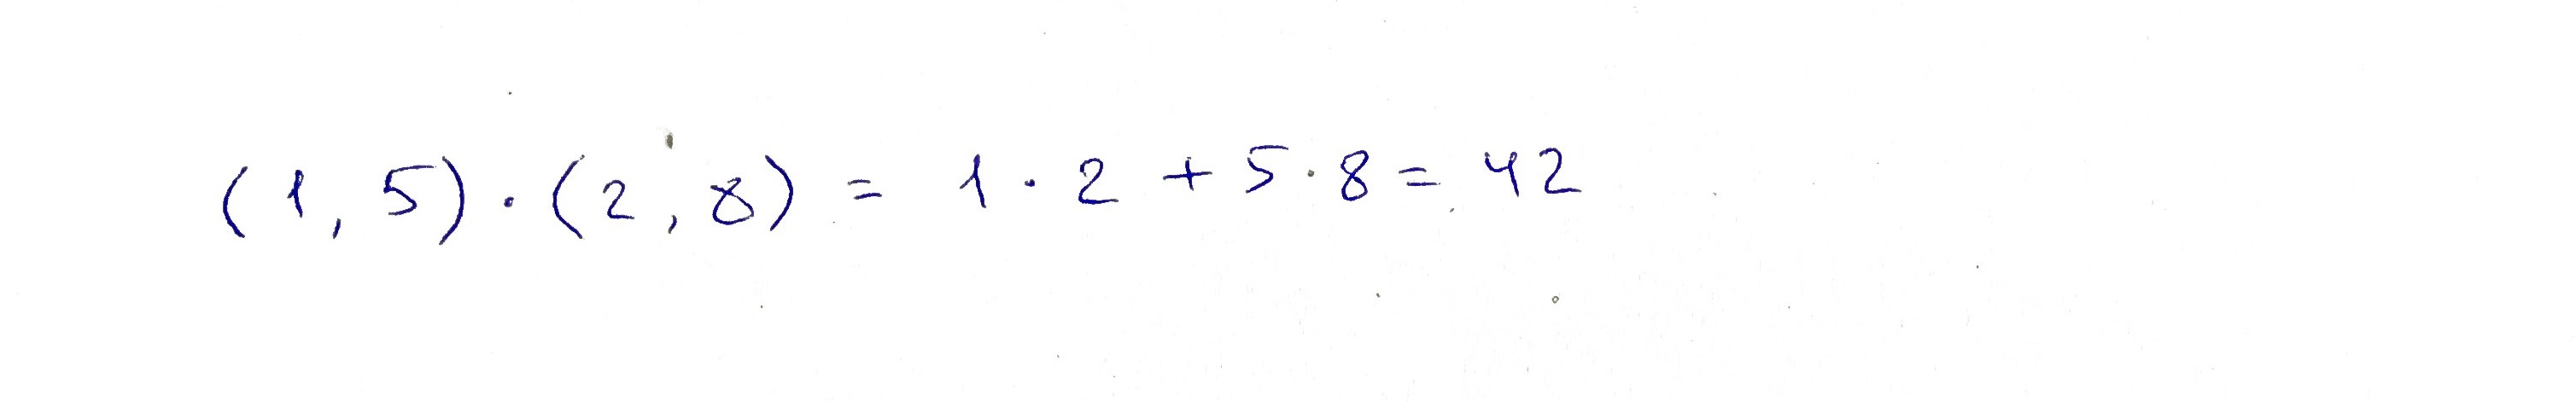 (1, 5) · (2, 8) = 1 · 2 + 5 · 8 = 42